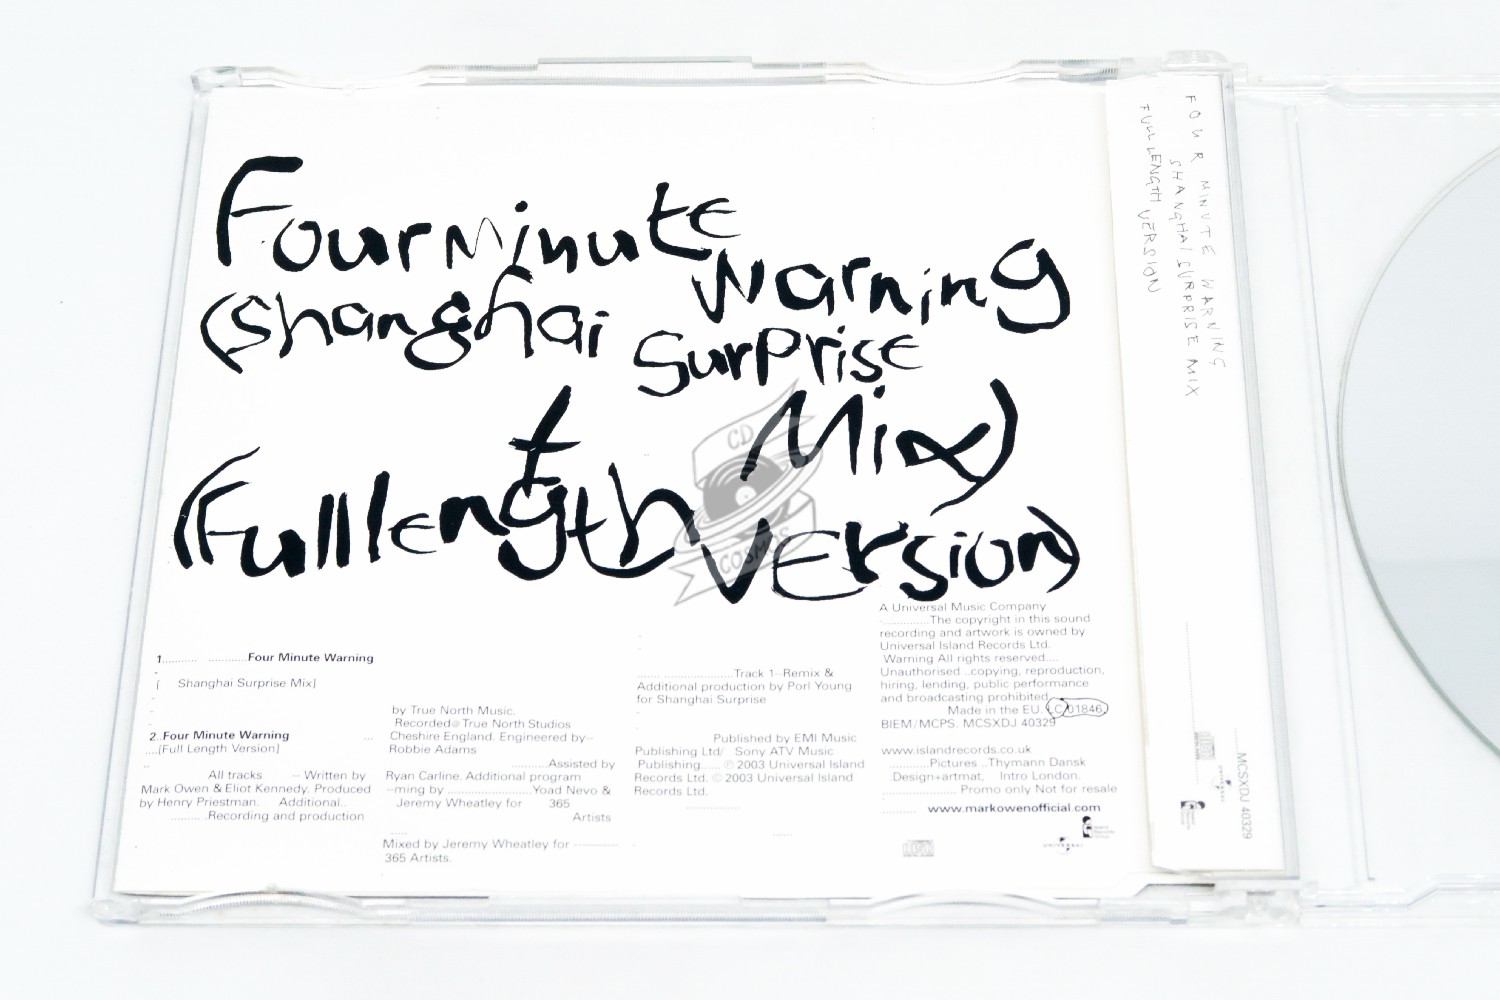 Four Minute
Warning
(Shanghai Surprise
Mix)
t
(Full length Version)
CD
COSMOS
1.......... ............Four Minute Warning
[ Shanghai Surprise Mix]
2. Four Minute Warning ...
....[Full Length Version]
All tracks – Written by
Mark Owen & Eliot Kennedy. Produced
by Henry Priestman. Additional..
..........Recording and production
by True North Music.
Recorded@ True North Studios
Cheshire England. Engineered by–
Robbie Adams
..........Assisted by
Ryan Carline. Additional program
–ming by ....................... Yoad Nevo &
Jeremy Wheatley for 365
Artists
Mixed by Jeremy Wheatley for ------------
365 Artists.
...... ....................Track 1–Remix &
Additional production by Porl Young
for Shanghai Surprise
Published by EMI Music
Publishing Ltd/ Sony ATV Music
Publishing..... ℗ 2003 Universal Island
Records Ltd. © 2003 Universal Island
Records Ltd.
A Universal Music Company
..............The copyright in this sound
recording and artwork is owned by
Universal Island Records Ltd.
Warning All rights reserved....
Unauthorised ..copying, reproduction,
hiring, lending, public performance
and broadcasting prohibited
Made in the EU. LC 01846
BIEM/MCPS. MCSXDJ 40329
www.islandrecords.co.uk
..........Pictures ..Thymann Dansk
Design+artmat, Intro London.
.................... Promo only Not for resale
.......... www.markowenofficial.com
UNIVERSAL
FOUR MINUTE WARNING
SHANGHAI SURPRISE MIX
FULL LENGTH VERSION
MCSXDJ 40329